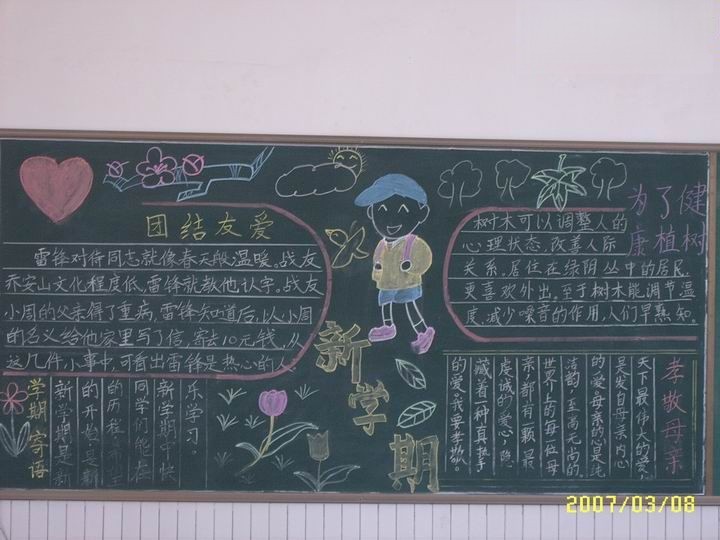 团结友爱
雷锋对待同志就像春天般温暖。战友
乔安山文化程度低,雷锋就教他认字。战友
小周的父亲得了重病,雷锋知道后,以小周
的名义给他家里写了信,寄去10元钱。从
这几件小事中,可看出雷锋是热心的人。
为了健
康植树
树木可以调整人的
心理状态,改善人际
关系,居住在绿阴丛中的居民,
更喜欢外出。至于树木能调节温
度、减少噪音的作用,人们早熟知。
新学期
学期寄语
新学期是新
的开始是新
的历程
同学们能在
新学期中快
乐学习。
孝敬母亲
天下最伟大的爱,
是发自母亲内心
的爱,母亲的心是纯
洁的,至高无尚的。
世界上的每一位母
亲,都有一颗最
虔诚的爱心,隐
藏着一种真挚
的爱。我要孝敬。
2007/03/08